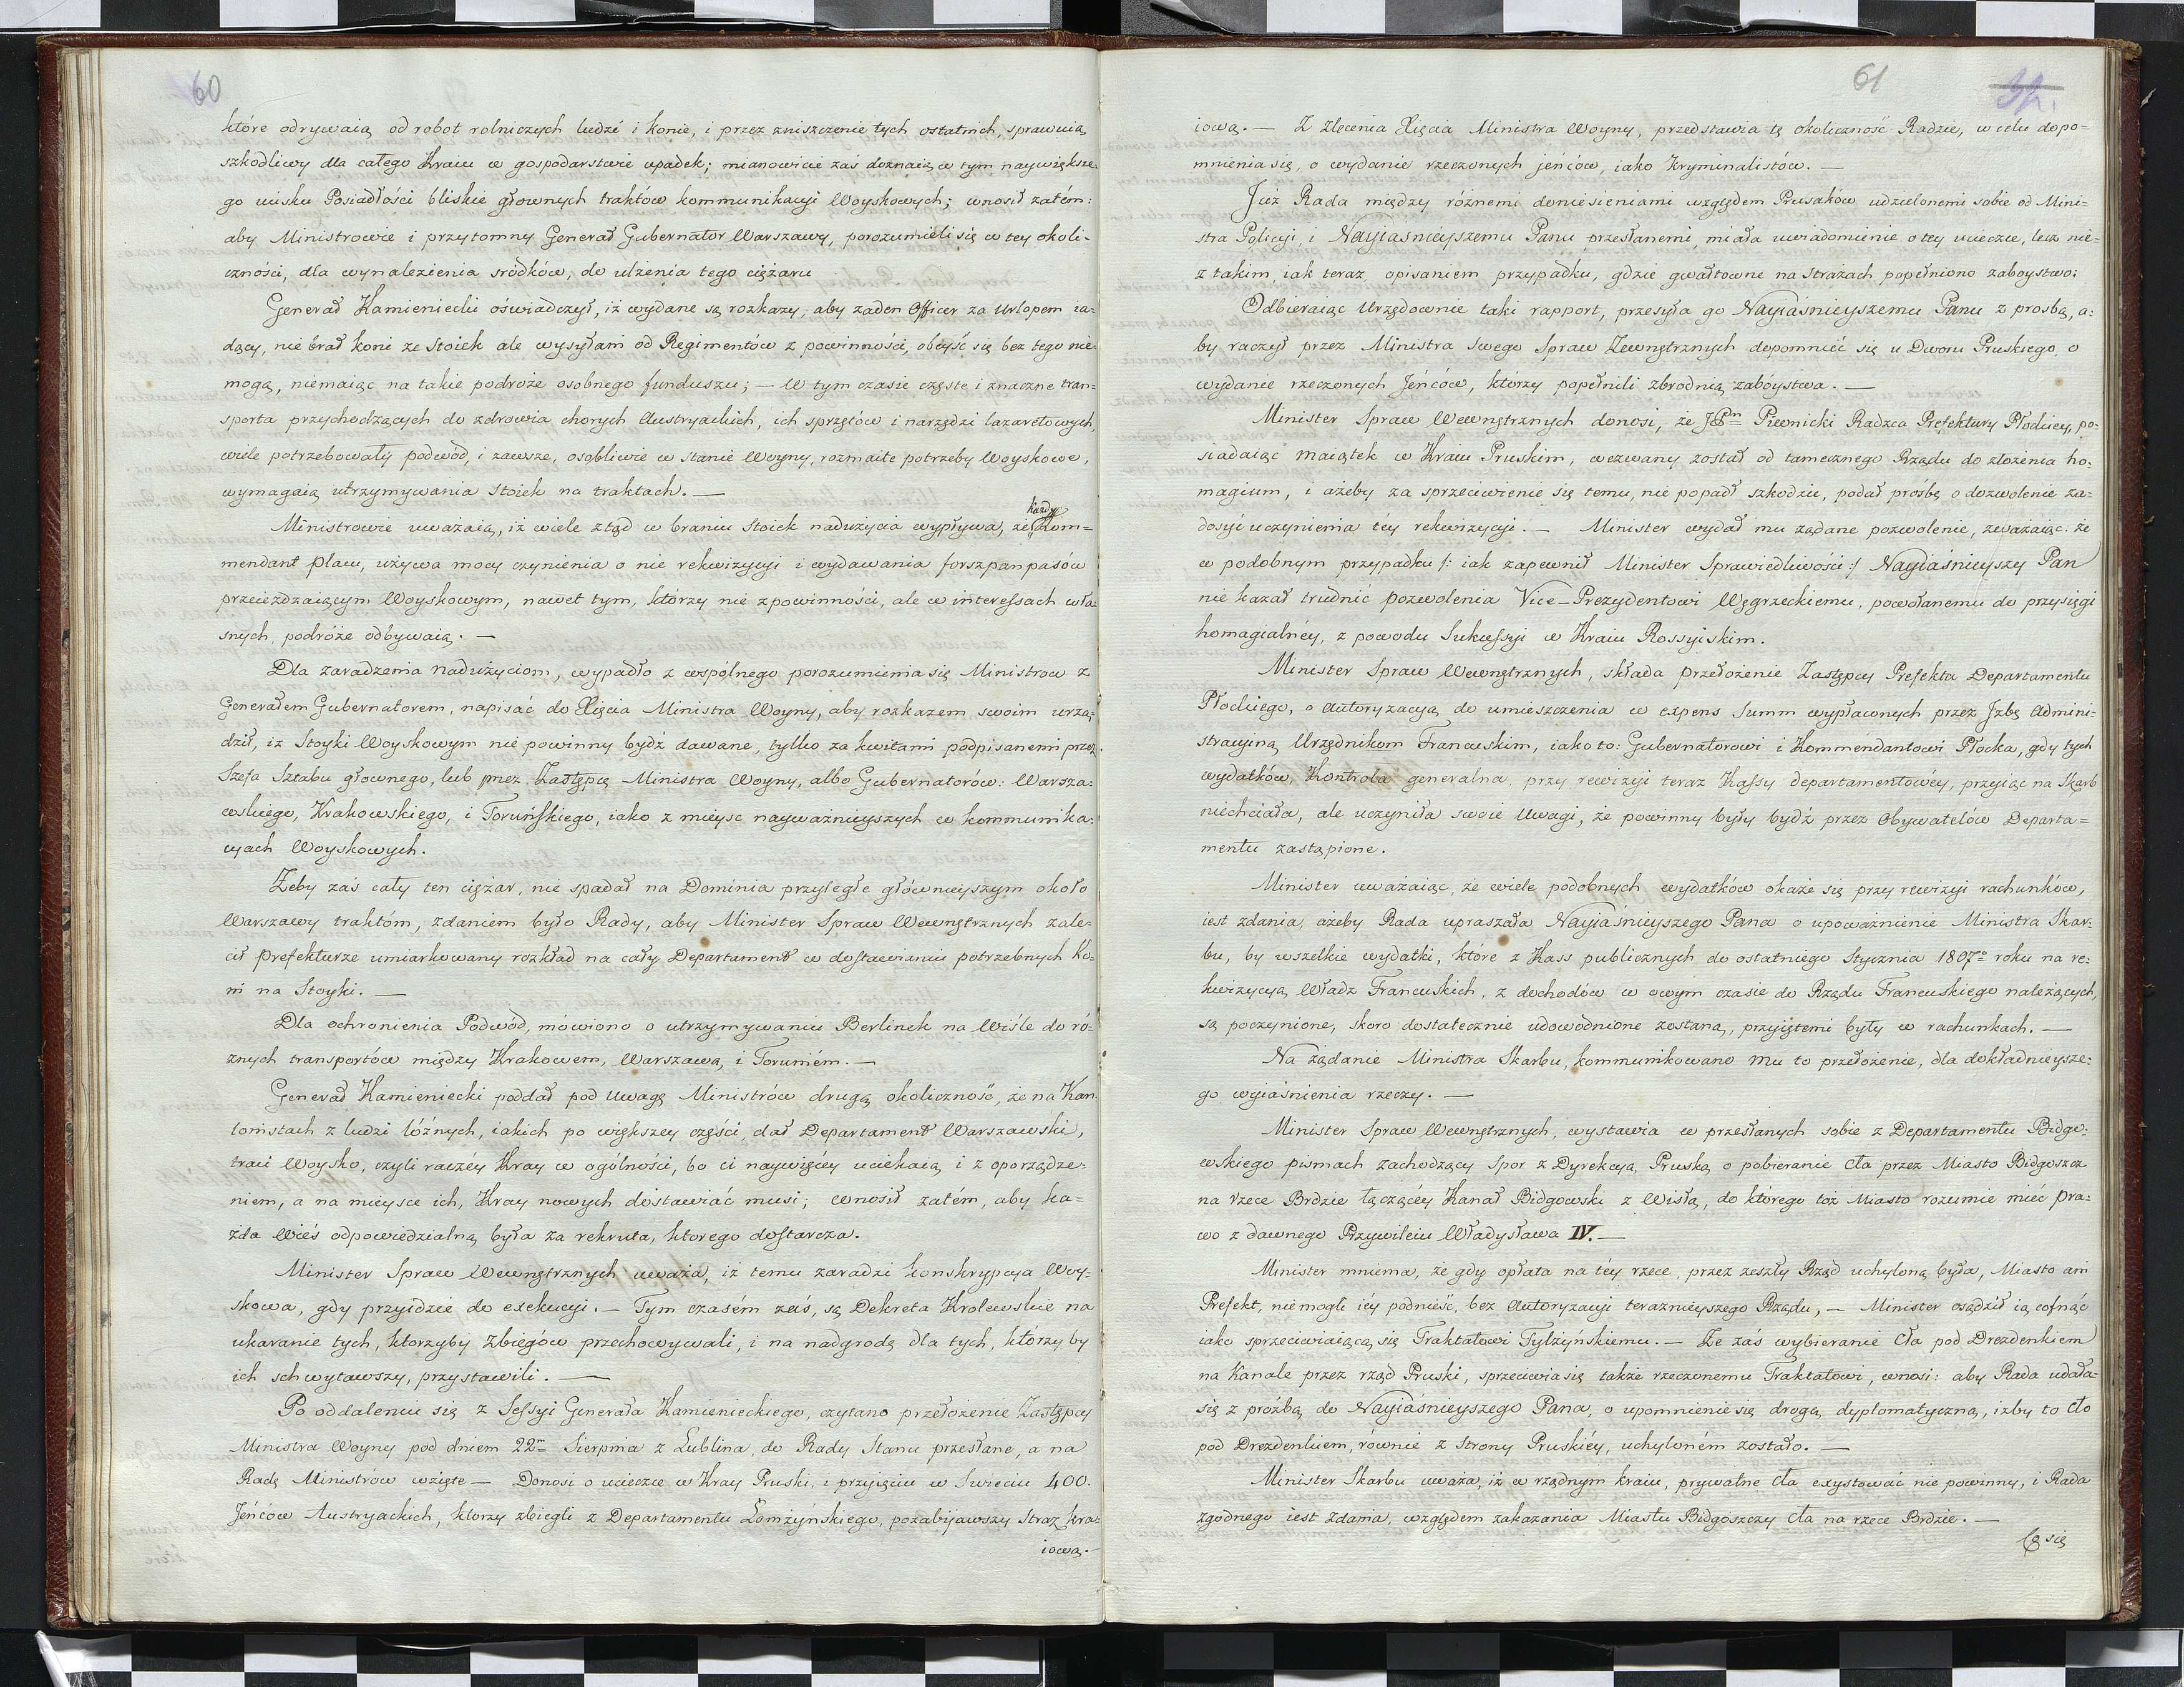 60
które odrywaią od robot rolniczych ludzi i konie, i przez zniszczenie tych ostatnich, sprawuią
szkodliwy dla całego Kraiu w gospodarstwie upadek; mianowicie zaś doznaią w tym naywiększe-
go ucisku Posiadłości bliskie głownych traktów kommunikacyi Woyskowych; wnosił zatém:
aby Ministrowie i przytomny Generał Gubernator Warszawy, porozumieli się w tey okoli-
czności, dla wynalezienia srzódków, do ulżenia tego ciężaru
Generał Kamieniecki oświadczył, iż wydane są rozkazy, aby żaden Officer za Urlopem ia-
dący, nie brał koni ze Stoiek ale wysyłani od Regimentów z powinności, obeyść się bez tego nie-
mogą, niemaiąc na takie podroże osobnego funduszu; — W tym czasie częste i znaczne tran-
sporta przychodzących do zdrowia chorych Austryackich, ich sprzętów i narzędzi lazaretowych,
wiele potrzebowały podwód, i zawsze, osobliwie w stanie Woyny, rozmaite potrzeby Woyskowe,
wymagaią utrzymywania Stoiek na traktach. —
każdy
Ministrowie uważaią, iż wiele ztąd w braniu Stoiek nadużycia wypływa, że Kom-
mendant placu, używa mocy czynienia o nie rekwizycyi i wydawania forszpanpasów
przeieżdzaiącym Woyskowym, nawet tym, którzy nie z powinności, ale w interessach wła-
snych, podróże odbywaią. —
Dla zaradzenia nadużyciom, wypadło z wspólnego porozumienia się Ministrow z
Generałem Gubernatorem, napisać do Xięcia Ministra Woyny, aby rozkazem swoim urzą-
dził, iż Stoyki Woyskowym nie powinny bydź dawane, tylko za kwitami podpisanemi przez
Szefa Sztabu głownego, lub przez Zastępcę Ministra Woyny, albo Gubernatorów: Warsza-
wskiego, Krakowskiego, i Toruńskiego, iako z mieysc nayważnieyszych w kommunika-
cyach Woyskowych.
Żeby zaś cały ten ciężar, nie spadał na Dominia przyległe główneyszym około
Warszawy traktóm, zdaniem było Rady, aby Minister Spraw Wewnętrznych zale-
cił Prefekturze umiarkowany rozkład na cały Departament w dostawianiu potrzebnych Ko-
ni na Stoyki. —
Dla ochronienia Podwód, mówiono o utrzymywaniu Berlinek na Wiśle do ró-
znych transportów między Krakowem, Warszawą, i Toruniém. —
Generał Kamieniecki poddał pod Uwagę Ministrów drugą okoliczność, że na Kan-
tonistach z ludzi lóźnych, iakich po większey części, dał Departament Warszawski,
traci Woysko, czyli raczéy Kray w ogólności, bo ci naywięcéy uciekaią i z oporządze-
niem, a na mieysce ich, Kray nowych dostawiać musi; wnosił zatém, aby ka-
żda Wieś odpowiedzialną była za rekruta, ktorego dostarcza.
Minister Spraw Wewnętrznych uważa, iż temu zaradzi konskrypcya Woy-
skowa, gdy przyidzie do exekucyi. — Tym czasém zaś, są Dekreta Krolewskie na
ukaranie tych, ktorzyby Zbiegów przechowywali, i na nadgrodę dla tych, którzy by
ich schwytawszy, przystawili. —
Po oddaleniu się z Sessyi Generała Kamienieckiego, czytano przełożenie Zastępcy
Ministra Woyny pod dniem 22m Sierpnia z Lublina, do Rady Stanu przesłane, a na
Radę Ministrów wzięte — Donosi o ucieczce w Kray Pruski, i przyięciu w Swieciu 400.
Jeńców Austryackich, ktorzy zbiegli z Departamentu Łomżyńskiego, pozabijawszy Straż kra-
iową. —
61
iową. — Z Zlecenia Xięcia Ministra Woyny, przedstawia tę okoliczność Radzie, w celu dopo-
mnienia się, o wydanie rzeczonych jeńców, iako Kryminalistów. —
Już Rada między różnemi doniesieniami względem Prusaków udzielonemi sobie od Mini-
stra Policyi, i Nayiaśnieyszemu Panu przesłanemi, miała uwiadomienie o tey ucieczce, lecz nie-
z takim iak teraz opisaniem przypadku, gdzie gwałtowne na Strażach popełniono zaboystwo;
Odbieraiąc Urzędownie taki rapport, przesyła go Nayiaśnieyszemu Panu z prosbą, a-
by raczył przez Ministra Swego Spraw Zewnętrznych dopomnieć się u Dworu Pruskiego, o
wydanie rzeczonych Jeńców, którzy popełnili zbrodnią zabóystwa. —
Minister Spraw Wewnętrznych donosi, że JPn Piwnicki Radzca Prefektury Płockiey, po-
siadaiąc Maiątek w Kraiu Pruskim, wezwany został od tamecznego Rządu do złożenia ho-
magium, i ażeby za sprzeciwienie się temu, nie popadł szkodzie, podał prośbę o dozwolenie za-
dosyć uczynienia téy rekwizycyi. — Minister wydał mu żądane pozwolenie, zważaiąc: że
w podobnym przypadku /: iak zapewnił Minister Sprawiedliwości :/ Nayiaśnieyszy Pan
nie kazał trudnić pozwolenia Vice-Prezydentowi Węgrzeckiemu, powołanemu do przysięgi
homagialnéy, z powodu Sukcessyi w Kraiu Rossyiskim.
Minister Spraw Wewnętrznych, składa przełożenie Zastępcy Prefekta Departamentu
Płockiego, o autoryzacyą do umieszczenia w expens Summ wypłaconych przez Izbę Admini-
stracyiną Urzędnikom Francuskim, iako to: Gubernatorowi i Kommendantowi Płocka, gdy tych
wydatków, Kontrola generalna, przy rewizyi teraz Kassy departamentowéy, przyiąc na Skarb
niechciała, ale uczyniła swoie Uwagi, że powinny były bydź przez Obywatelów Departa-
mentu zastąpione.
Minister uważaiąc, że wiele podobnych wydatków okaże się przy rewizyi rachunków,
iest zdania, ażeby Rada upraszała Nayiaśnieyszego Pana o upoważnienie Ministra Skar-
bu, by wszelkie wydatki, które z Kass publicznych do ostatniego Stycznia 1807o roku na re-
kwizycyą Władz Francuskich, z dochodów w owym czasie do Rządu Francuskiego należących,
są poczynione, skoro dostatecznie udowodnione zostaną, przyiętemi były w rachunkach. —
Na żądanie Ministra Skarbu, kommunikowano Mu to przełożenie, dla dokładnieysze-
go wyiaśnienia rzeczy. —
Minister Spraw Wewnętrznych, wystawia w przesłanych sobie z Departamentu Bidgo-
wskiego pismach zachodzący Spor z Dyrekcyą Pruską o pobieranie Cła przez Miasto Bidgoszcz
na rzece Brdzie łączącéy Kanał Bidgowski z Wisłą, do którego toż Miasto rozumie mieć pra-
wo z dawnego Przywileiu Władysława IV. —
Minister mniema, że gdy opłata na téy rzece, przez zeszły Rząd uchyloną była, Miasto ani
Prefekt, nie mogli iéy podnieść, bez autoryzacyi teraznieyszego Rządu, — Minister osądził ią cofnąć
iako sprzeciwiaiącą się Traktatowi Tylzyńskiemu. — Że zaś wybieranie Cła pod Drezdenkiem
na Kanale przez rząd Pruski, sprzeciwia się także rzeczonemu Traktatowi, wnosi: aby Rada udała-
się z próźbą do Nayiaśnieyszego Pana, o upomnienie się drogą dyplomatyczną, iżby to Cło
pod Drezdenkiem, równie z Strony Pruskiéy, uchyloném zostało. —
Minister Skarbu uważa, iż w rządnym kraiu, prywatne Cła exystować nie powinny, i Rada
zgodnego iest zdania, względem zakazania Miastu Bidgoszczy Cła na rzece Brdzie. —
Co się